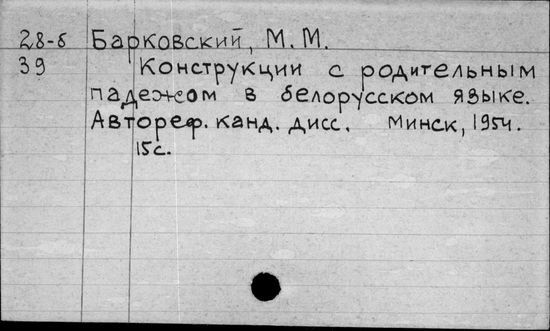 28-б Барковский, М.М.
39 Конструкции с родительным
падежом в белорусском языке.
Автореф. канд. дисс. Минск, 1954.
15с.